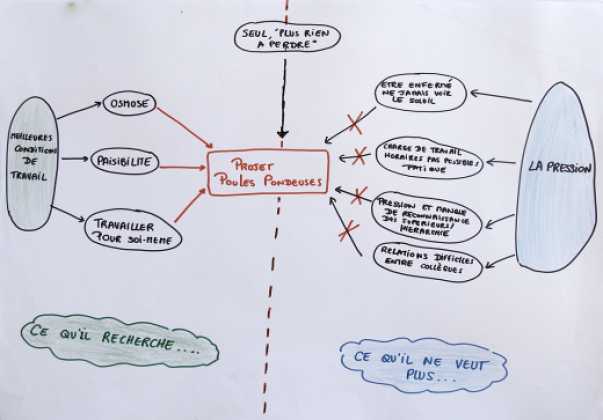 SEUL, "PLUS RIEN
A PERDRE"
MEILLEURES
CONDITIONS
DE
TRAVAIL
OSMOSE
PAISIBILITE
TRAVAILLER
POUR SOI-MEME
PROJET
POULES PONDEUSES
ETRE ENFERMÉ
NE JAMAIS VOIR
LE SOLEIL
CHARGE DE TRAVAIL
HORAIRES PAS POSSIBLES
FATIGUE
PRESSION ET MANQUE
DE RECONNAISSANCE
DES SUPERIEURS/
HIERARCHIE
RELATIONS DIFFICILES
ENTRE COLLÈGUES
LA PRESSION
CE QU'IL RECHERCHE....
CE QU'IL NE VEUT
PLUS...